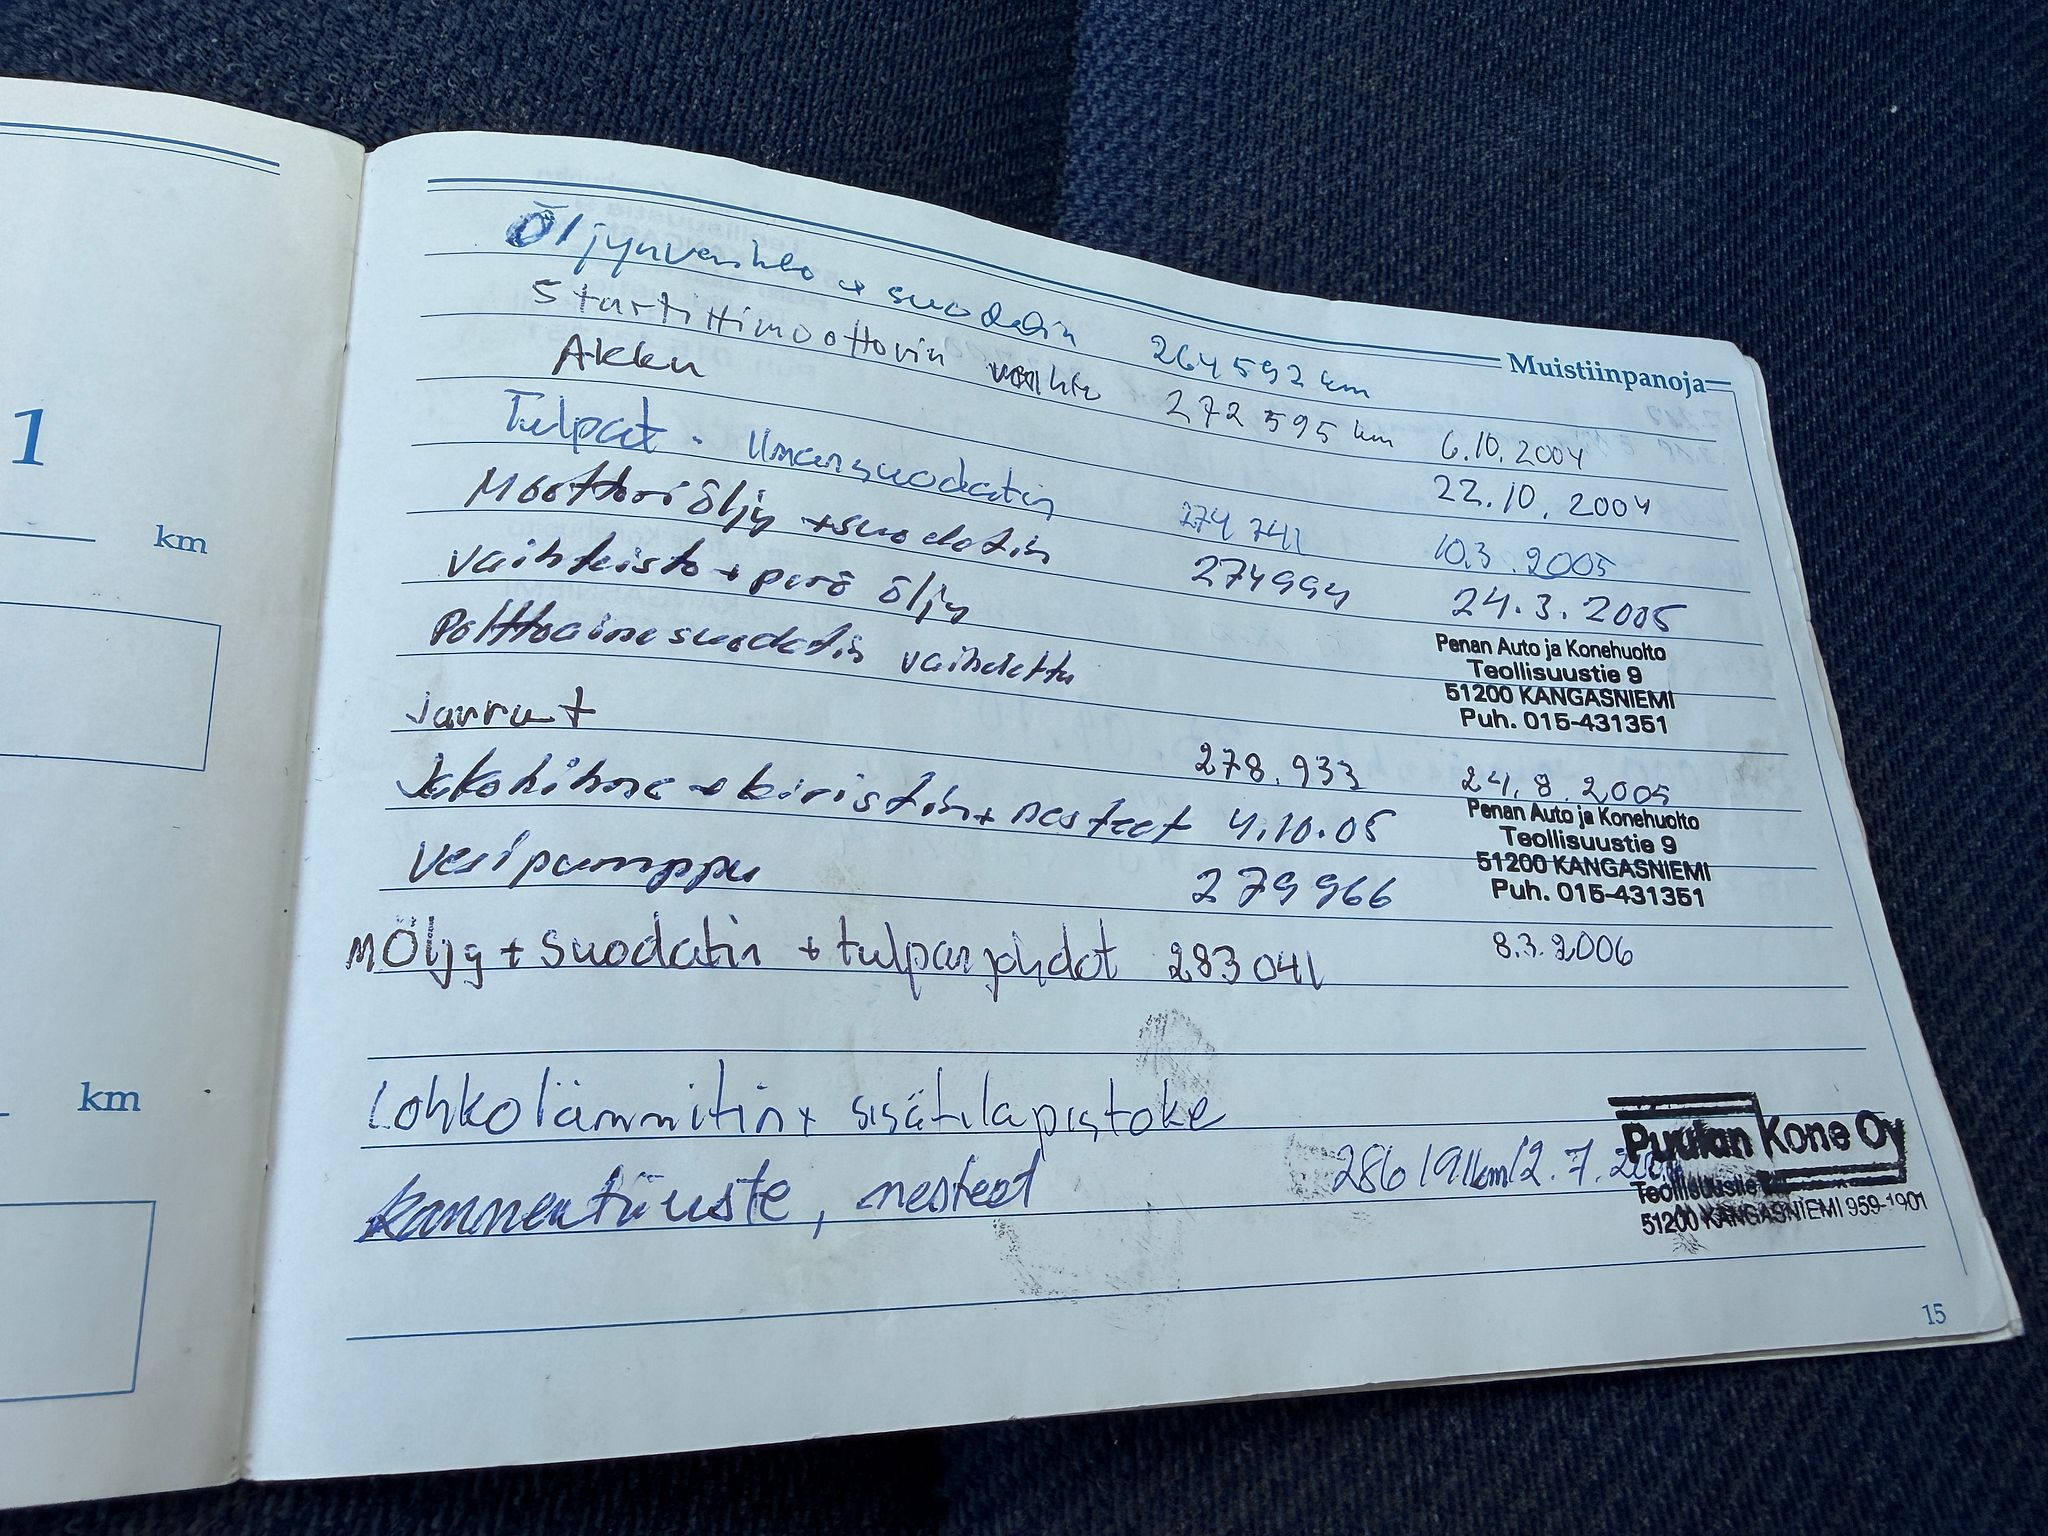 Muistiinpanoja
Öljynvaihto + suodatin 264 592 km
Starttimoottorin vaihto 272 595 km 6.10.2004
Akku 22.10.2004
Tulpat - Ilmansuodatin 274 741 10.3.2005
Moottoriöljy + suodatin 274994 24.3.2005
vaihteisto + perä öljy
Polttoainesuodatin vaihdettu
Penan Auto ja Konehuolto
Teollisuustie 9
51200 KANGASNIEMI
Puh. 015-431351
jarrut 278.933 24.8.2005
Jakohihna + kiristin + nesteet 4.10.05
Vesipumppu 279966
Penan Auto ja Konehuolto
Teollisuustie 9
51200 KANGASNIEMI
Puh. 015-431351
MÖljy + suodatin + tulpanjohdot 283041 8.3.2006
Lohkolämmitin + sisätilapistoke
kannentiiviste, nesteet 286191km/2.7.
Puulan Kone Oy
Teollisuustie
51200 KANGASNIEMI 959-1901
15
1
km
km